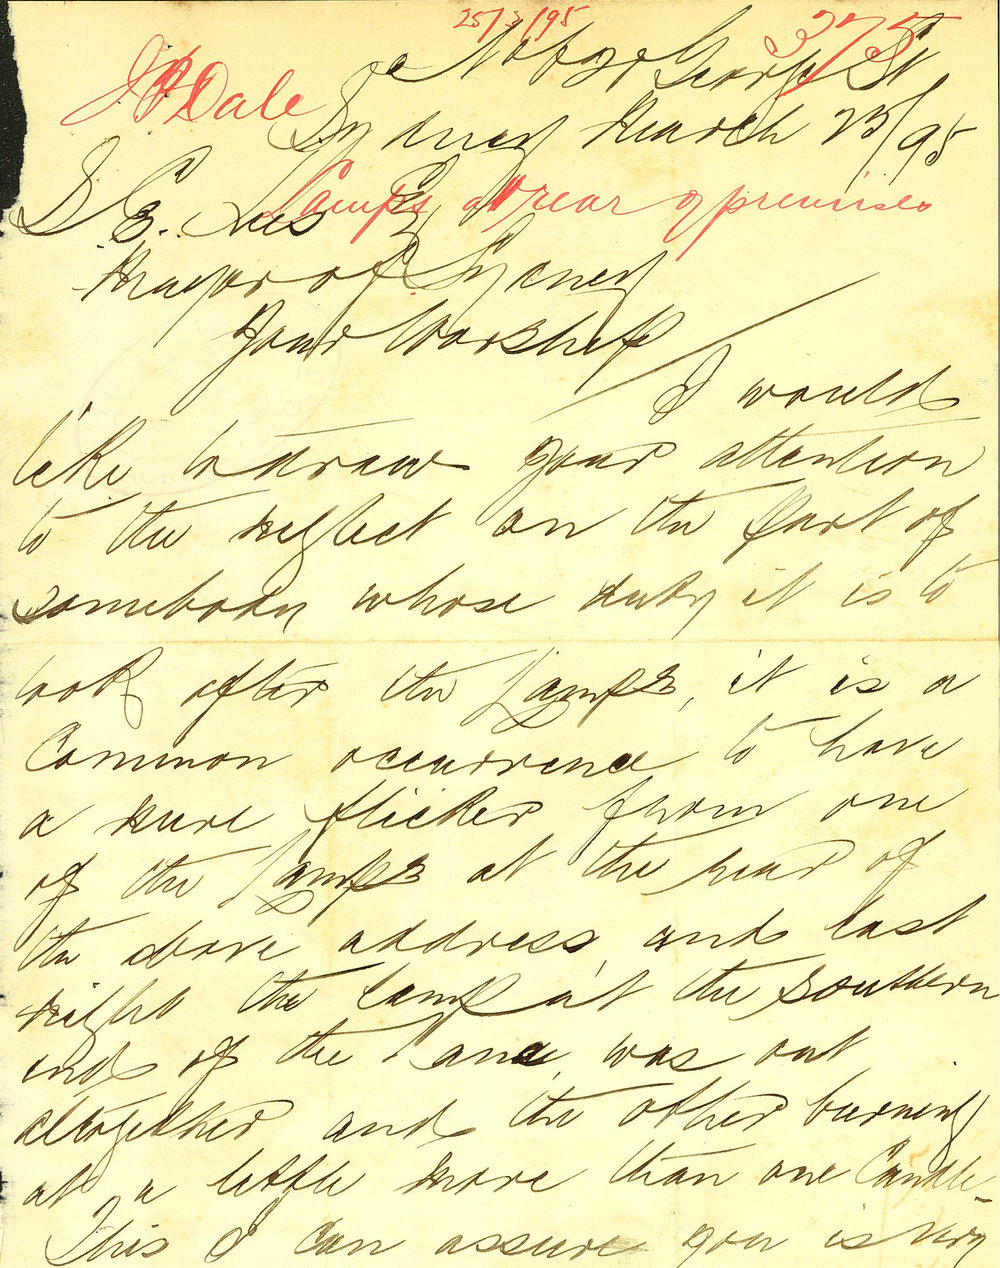 25/3/95
375
J P Dale
George St
Sydney March 23/95
Lamps at rear of premises
S. E. Lees Esq
Mayor of Sydney
Your Worship/
I would
like to draw your attention
to the neglect on the part of
somebody whose duty it is to
look after the Lamps, it is a
Common occurrence to have
a mere flicker from one
of the Lamps at the rear of
the above address, and last
night the Lamp at the southern
end of the Lane, was out
altogether and the other burning
at a little more than one Candle-
This I can assure you is very